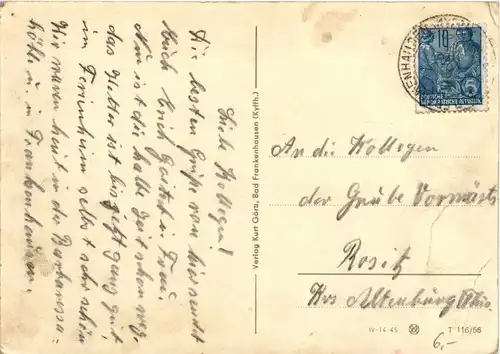 Liebe Kollegen!
Die besten Grüße von hier sendet
Euch Erich Geitel u. Frau.
Nun ist die halbe Zeit schon weg.
das Wetter ist bis jetzt ganz gut
im Ferienheim selbst sehr schön
Wir waren heut in der Barbarossa-
höhle u. in Frankenhausen.
Verlag Kurt Görtz, Bad Frankenhausen (Kyffh.)
An die Kollegen
der Grube Vorwärts
Rositz
Krs Altenburg Thür
IV-14-45
T 116/56
6,-
DEUTSCHE
DEMOKRATISCHE REPUBLIK